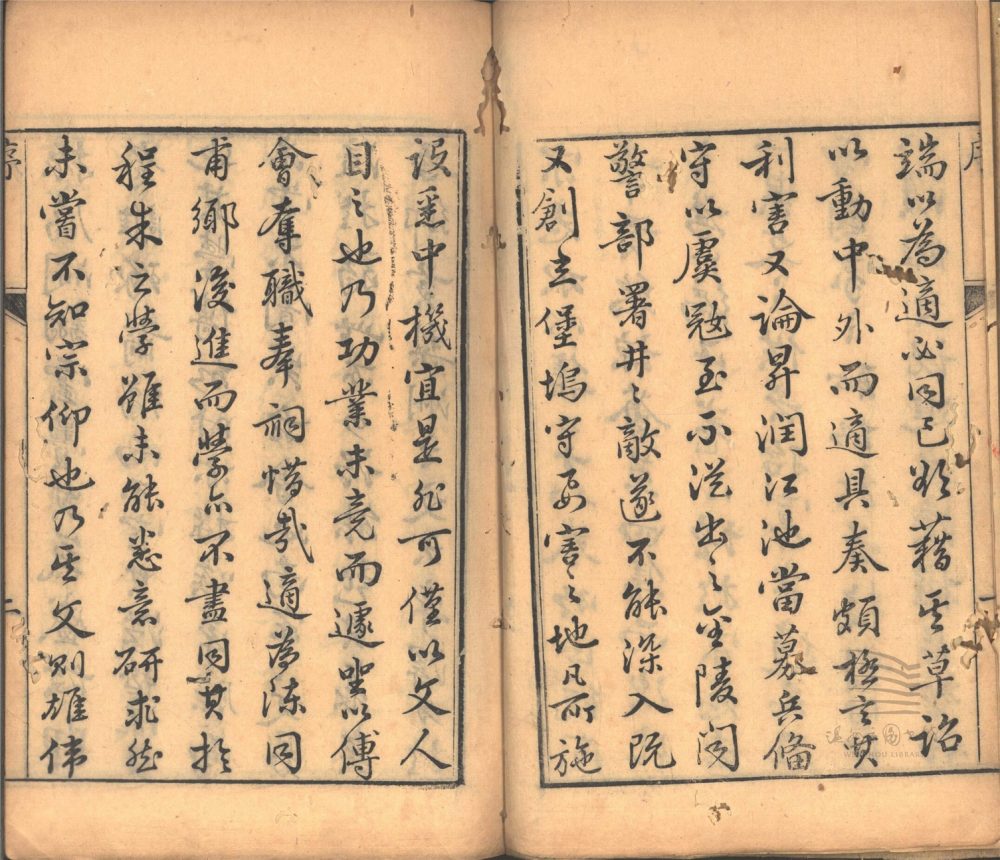 序
端以為適必同己欲藉其草詔
以動中外而適具奏頗極言其
利害又論昇潤江池當募兵備
守以虞寇至不從出之金陵聞
警部署井々敵遂不能深入既
又創立堡塢守要害之地凡所施
設悉中機宜是非可僅以文人
目之也乃功業未竟而遽坐以傅
會奪職奉祠惜哉適為陳同
甫鄉後進而學亦不盡同其於
程朱之學雖未能悉意研求然
未嘗不知宗仰也乃其文則雄偉
序
二
WENZHOU LIBRARY